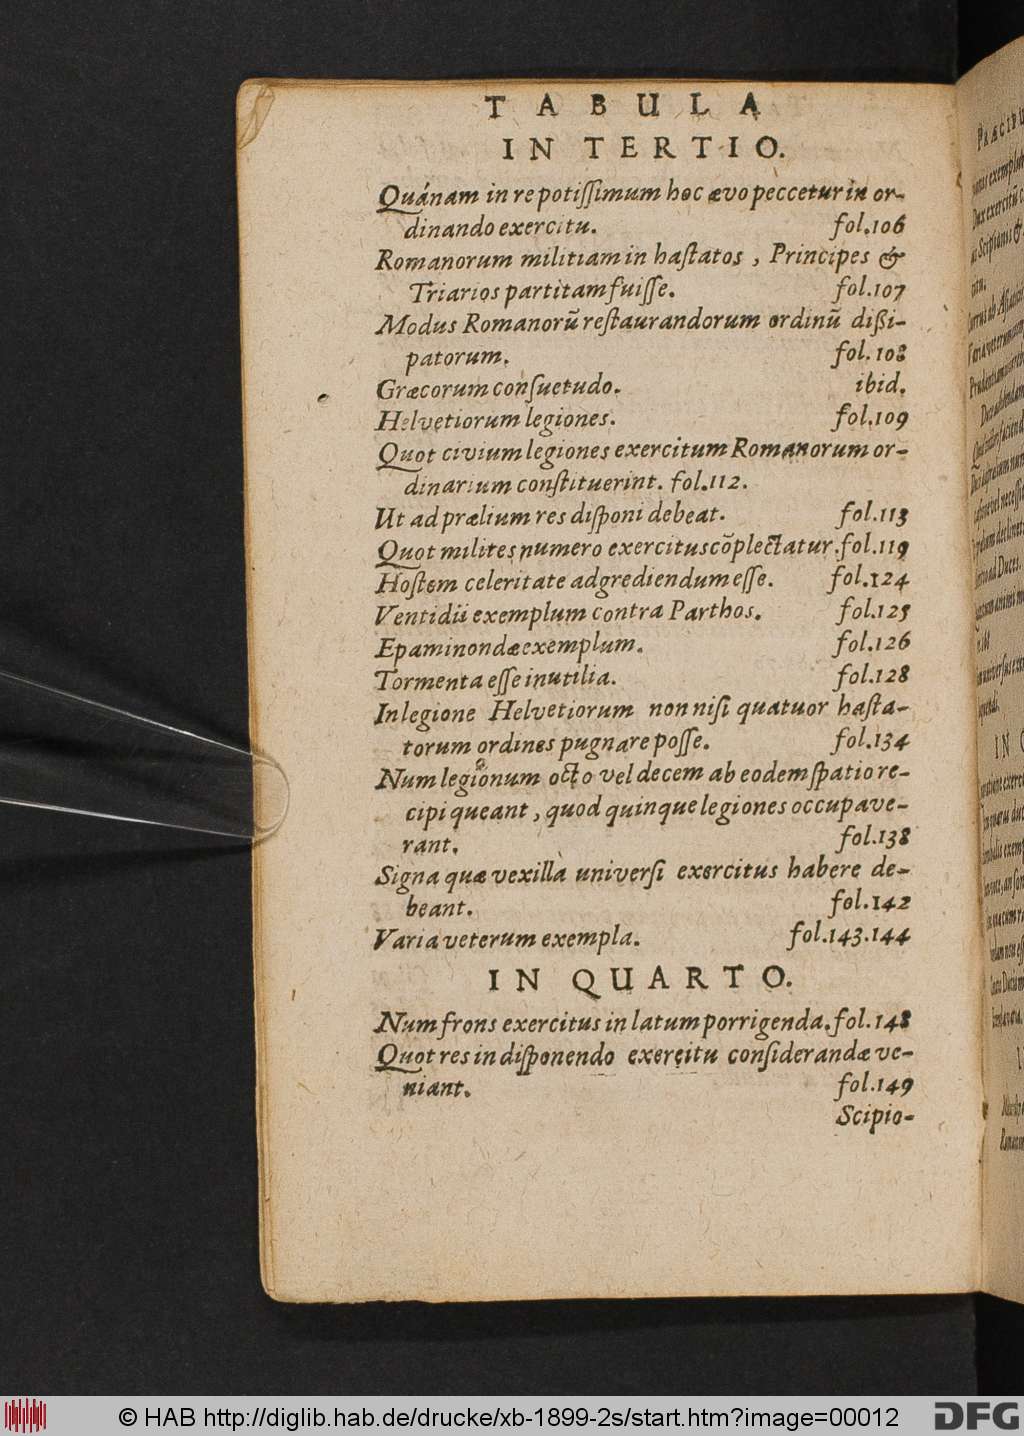 TABULA
IN TERTIO.
Quánam in re potiſſimum hoc ævo peccetur in or-
dinando exercitu. fol.106
Romanorum militiam in haſtatos, Principes &
Triarios partitam fuiſſe. fol.107
Modus Romanorū reſtaurandorum ordinū dißi-
patorum. fol.108
Græcorum conſuetudo. ibid.
Helvetiorum legiones. fol.109
Quot civium legiones exercitum Romanorum or-
dinarium conſtituerint. fol.112.
Ut ad prælium res diſponi debeat. fol.113
Quot milites numero exercitus cōplectatur. fol.119
Hoſtem celeritate adgrediendum eſſe. fol.124
Ventidii exemplum contra Parthos. fol.125
Epaminondæ exemplum. fol.126
Tormenta eſſe inutilia. fol.128
In legione Helvetiorum non niſi quatuor haſta-
torum ordines pugnare poſſe. fol.134
Num legionum octo vel decem ab eodem ſpatio re-
cipi queant, quod quinque legiones occupave-
rant. fol.138
Signa quæ vexilla univerſi exercitus habere de-
beant. fol.142
Varia veterum exempla. fol.143.144
IN QUARTO.
Num frons exercitus in latum porrigenda. fol.148
Quot res in diſponendo exercitu conſiderandæ ve-
niant. fol.149
Scipio-
© HAB http://diglib.hab.de/drucke/xb-1899-2s/start.htm?image=00012
DFG